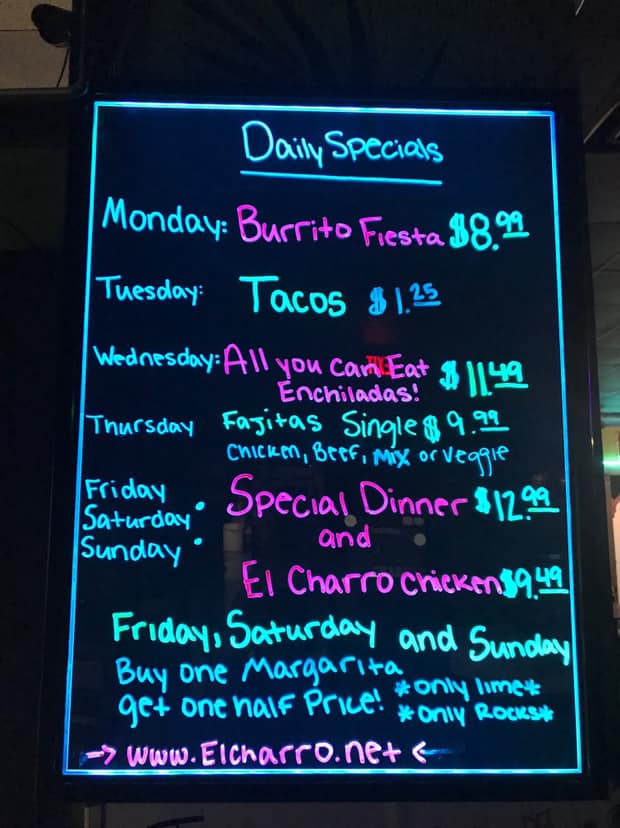 Daily Specials
Monday: Burrito Fiesta $8.99
Tuesday: Tacos $1.25
Wednesday: All you can Eat $11.49
Enchiladas!
Thursday Fajitas Single $9.99
Chicken, Beef, Mix or Veggie
Friday
Saturday
Sunday
Special Dinner $12.99
and
El Charro chicken $9.49
Friday, Saturday and Sunday
Buy one Margarita
get one half Price!
*only lime*
*only Rocks*
→ www.Elcharro.net ←